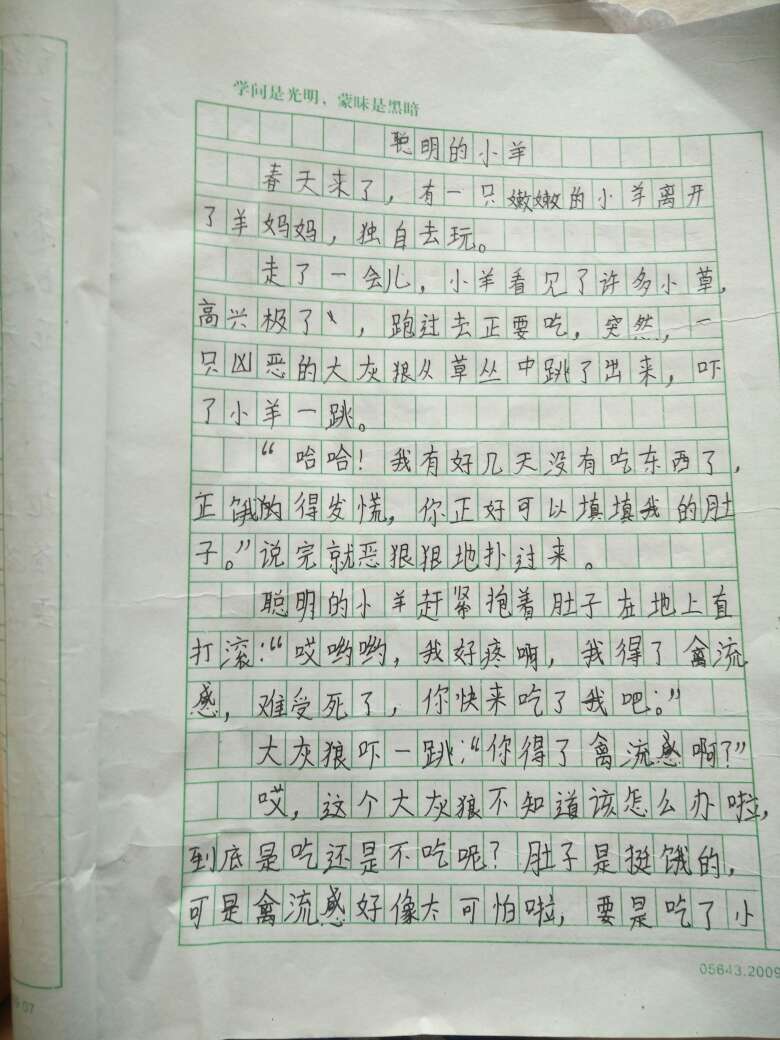 学问是光明，蒙昧是黑暗
聪明的小羊
春天来了，有一只嫩嫩的小羊离开
了羊妈妈，独自去玩。
走了一会儿，小羊看见了许多小草，
高兴极了，跑过去正要吃，突然，一
只凶恶的大灰狼从草丛中跳了出来，吓
了小羊一跳。
“哈哈！我有好几天没有吃东西了，
正饿的得发慌，你正好可以填填我的肚
子。”说完就恶狠狠地扑过来。
聪明的小羊赶紧抱着肚子在地上直
打滚：“哎哟哟，我好疼啊，我得了禽流
感，难受死了，你快来吃了我吧。”
大灰狼吓一跳：“你得了禽流感啊？”
哎，这个大灰狼不知道该怎么办啦，
到底是吃还是不吃呢？肚子是挺饿的，
可是禽流感好像太可怕啦，要是吃了小
05643.2009